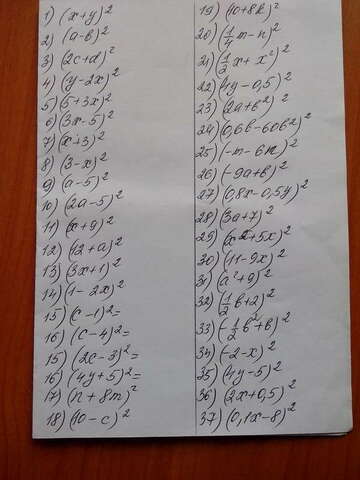 1) (x+y)²
2) (a-b)²
3) (2c+d)²
4) (y-2x)²
5) (5+3x)²
6) (3x-5)²
7) (x+3)²
8) (3-x)²
9) (a-5)²
10) (2a-5)²
11) (x+9)²
12) (12+a)²
13) (3x+1)²
14) (1-2x)²
15) (c-1)²=
16) (c-4)²=
15) (2c-3)²=
16) (4y+5)²=
17) (n+8m)²
18) (10-c)²
19) (10+8k)²
20) (1/4 m-n)²
21) (1/2 x+x²)²
22) (4y-0,5)²
23) (2a+b²)²
24) (0,6b-60b²)²
25) (-m-6n)²
26) (-9a+b)²
27) (0,8x-0,5y)²
28) (3a+7)²
29) (x²+5x)²
30) (11-9x)²
31) (a²+9)²
32) (1/2 b+2)²
33) (-1/2 b²+b)²
34) (-2-x)²
35) (4y-5)²
36) (2x+0,5)²
37) (0,1x-8)²